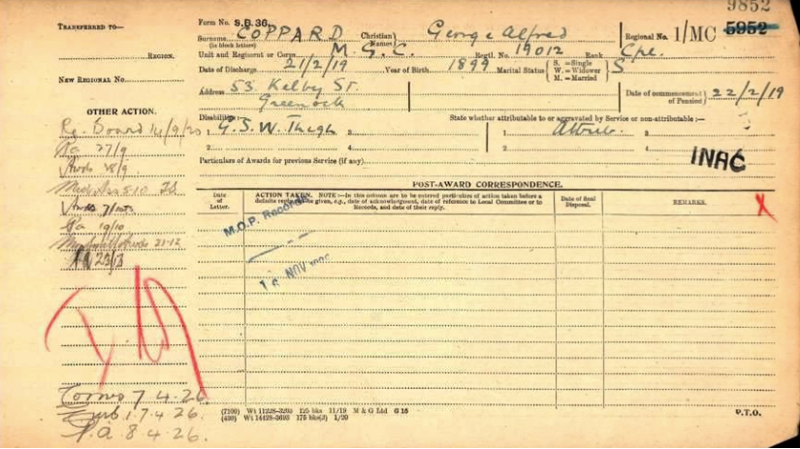 9852
TRANSFERRED TO—
REGION.
NEW REGIONAL No.
OTHER ACTION.
Form No. S.B.36.
Surname (in block letters) COPPARD Christian Names George Alfred Regional No. 1/MC 5952
Unit and Regiment or Corps M.G.C. Regtl. No. 19012 Rank Cpl.
Date of Discharge 21/2/19 Year of Birth 1899 Marital Status S. —Single W.—Widower M. —Married S
Address 53 Kelby St. Date of commencement of Pension 22/2/19
Greenock
Disability: State whether attributable to or aggravated by Service or non-attributable:—
1. G.S.W. Thigh 3. 1. Attrib. 3.
2. 4. 2. 4.
Particulars of Awards for previous Service (if any).
INAC
14/9/20
27/9
28/9
19/10
21.12
POST-AWARD CORRESPONDENCE.
Date of Letter. ACTION TAKEN. NOTE:—In this column are to be entered particulars of action taken before a definite reply is given, e.g., date of acknowledgment, date of reference to Local Committee or to Records, and date of their reply. Date of final Disposal. REMARKS.
X
M.O.P. Records
NOV
7.4.26.
1.7.4.26.
8.4.26.
(7100) Wt 11228—3293 125 bks 11/19 M & G Ltd G 15
(430) Wt 14428—3693 175 bks(3) 1/20
P.T.O.